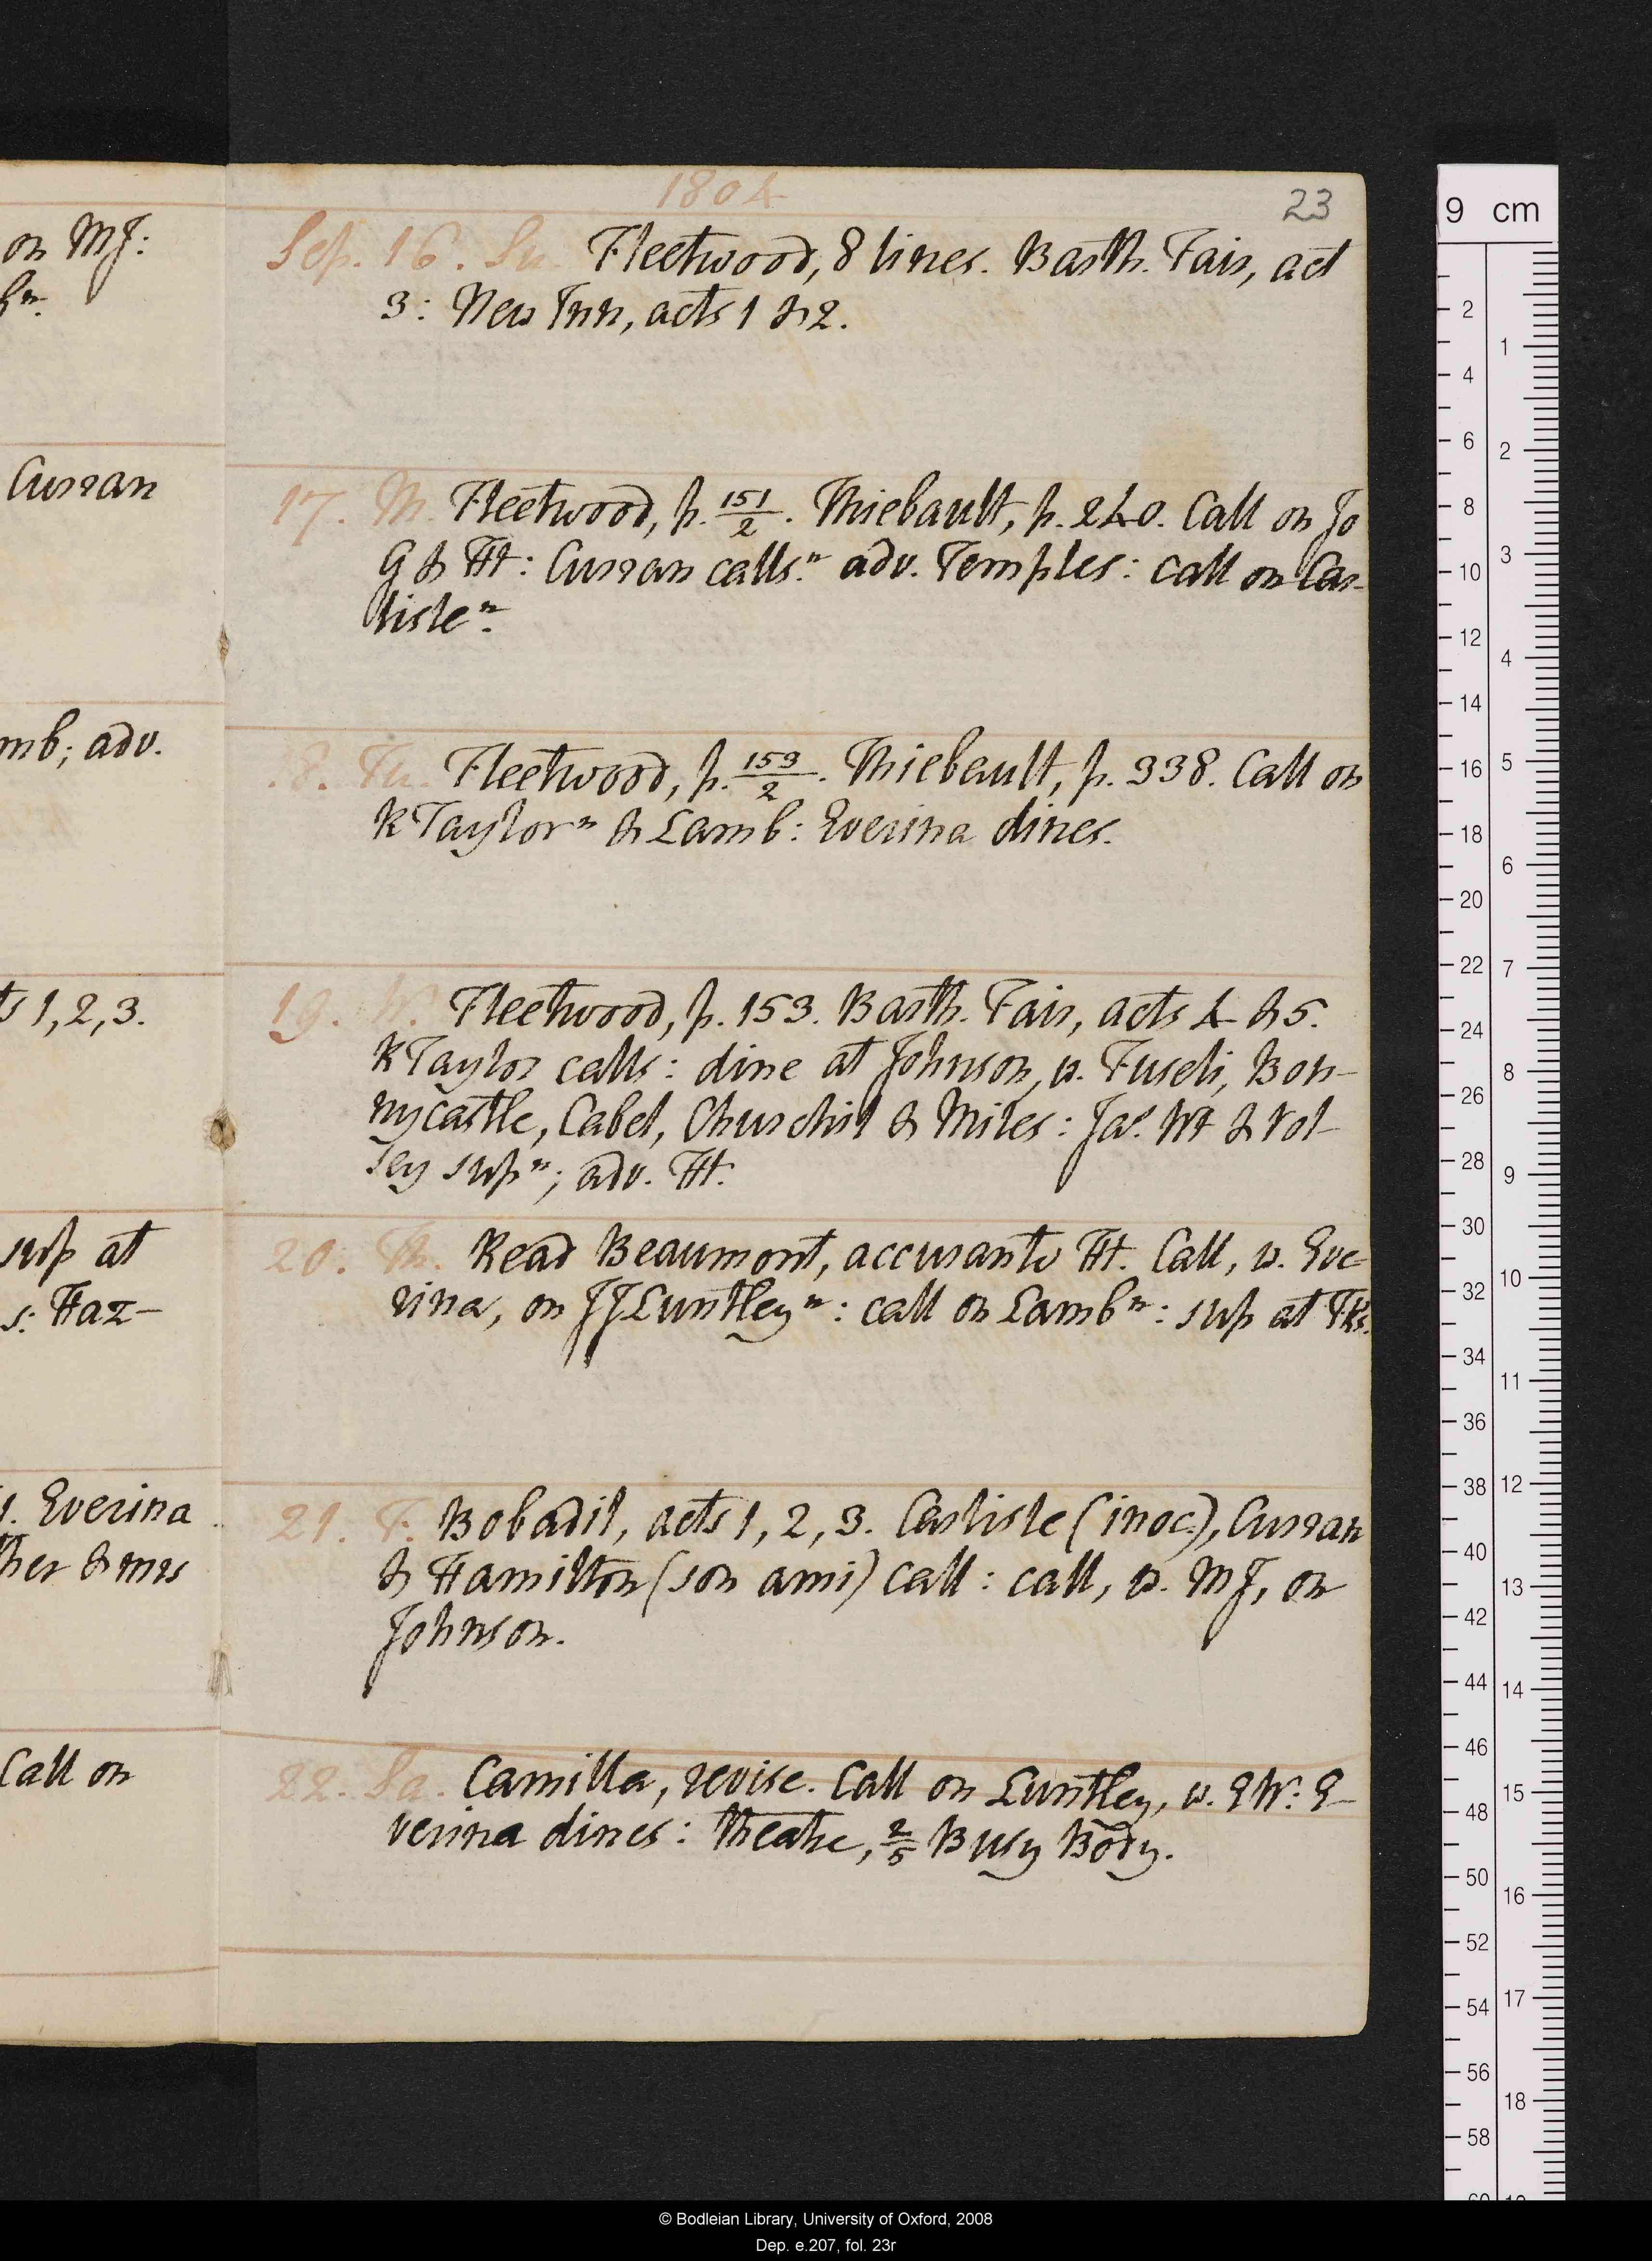 1804
23
on MJ:
Sep. 16. Su. Fleetwood, 8 lines. Barth. Fair, act
3: New Inn, acts 1 & 2.
Curran
17. M. Fleetwood, p. 151/2. Thiebault, p. 240. Call on Jo
G & Ht: Curran calls.n adv. Temples: call on Car-
lisle n.
mb; adv.
8. Tu. Fleetwood, p. 153/2. Thiebault, p. 338. Call on
K Taylor n & Lamb: Everina dines.
ts 1, 2, 3.
19. W. Fleetwood, p. 153. Barth. Fair, acts 4 & 5.
K Taylor calls: dine at Johnson, w. Fuseli, Bon-
nycastle, Cabel, Churchil & Miles: Jas. Wt & Vol-
ley sup n; adv. Ht.
sup at
s: Haz-
20. Th. Read Beaumont, accusanto Ht. Call, w. Eve-
rina, on JJ Luntley n: call on Lamb n: sup at Tks.
1. Everina
ther & mrs
21. F. Bobadil, acts 1, 2, 3. Carlisle (inoc.), Curran
& Hamilton (son ami) call: call, w. MJ, on
Johnson.
Call on
22. Sa. Camilla, revise. Call on Luntley, w. EW: E-
verina dines: theatre, 2/5 Busy Body.
9 cm
2
4
6
8
10
12
14
16
18
20
22
24
26
28
30
32
34
36
38
40
42
44
46
48
50
52
54
56
58
60
1
2
3
4
5
6
7
8
9
10
11
12
13
14
15
16
17
18
© Bodleian Library, University of Oxford, 2008
Dep. e.207, fol. 23r